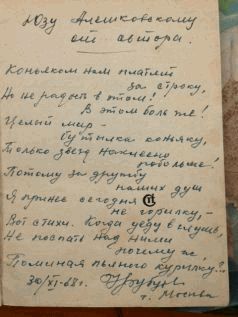 Юзу Алешковскому
от автора.
Коньяком нам платят
за строку,
Но не радость в этом!
В этом боль же!
Целый мир –
бутылка коньяку,
Только звезд нанесено
побольше!
Потому за дружбу
наших душ
Я принес сегодня
не горилку, –
Вот стихи. Когда уеду в глушь,
Не поспать над ними
почему ж,
Поминая пылкого курилку?..
30/XI-68 г.
г. Москва